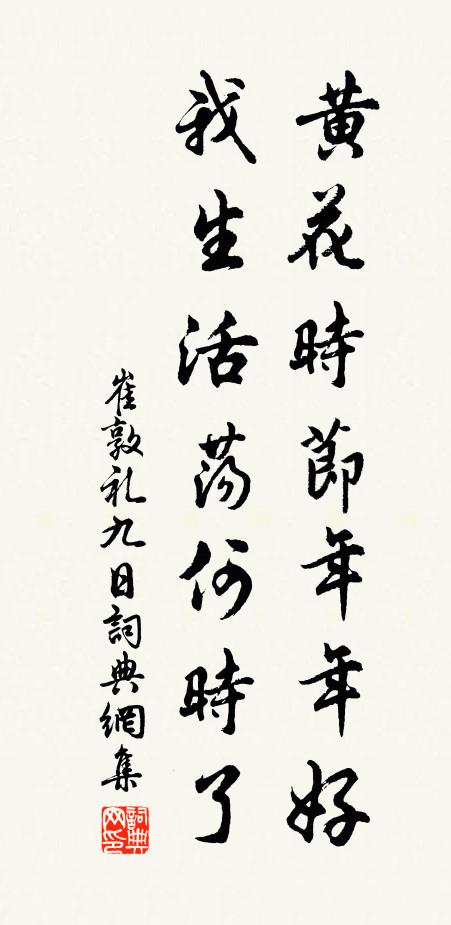 黄花時節年年好
我生活蕩何時了
崔敦礼九日詞典網集
詞典网印